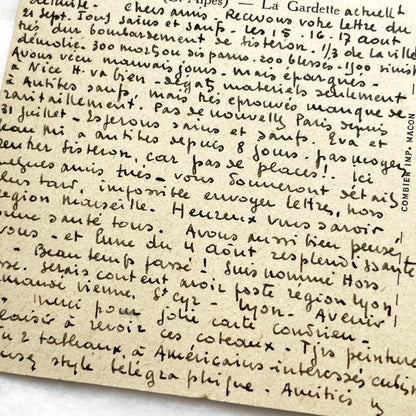 (B.-Alpes) — La Gardette actuellt
détruite. - Chers amis. Recu votre lettre du
21 sept. Tous sains et saufs. Les 15. 16. 17 aout
très dur bombardement de Sisteron. 1/3 de la ville
démolie. 300 morts ou disparus. 200 blessés. 1500 sinis
Avons vécu mauvais jours. mais épargnés.
à Nice H. va bien - dégats matériels seulement
à Antibes saufs, mais très éprouvés manque de
ravitaillement. Pas de nouvelles Paris depuis
31 juillet - Espérons sains et saufs. Eva et
à Antibes depuis 8 jours. pas moyen
rentrer Sisteron, car pas de places!. Ici
quelques amis tués - vous donneront détails
plus tard, impossible envoyer lettres, hors
région Marseille. Heureux vous savoir
bonne santé tous. Avons aussi bien pensé
vous - et lune du 4 Août resplendissante
- Beau temps passé! Suis nommé Hors
serais content avoir poste région Lyon
demande Vienne. St Cyr - Lyon. Avenir
merci pour jolie carte Condrieu -
plaisir à revoir ces coteaux. Tjrs peinture
2 tableaux à Américains intéressés cubis
style télégraphique. Amitiés
COMBIER IMP. MACON